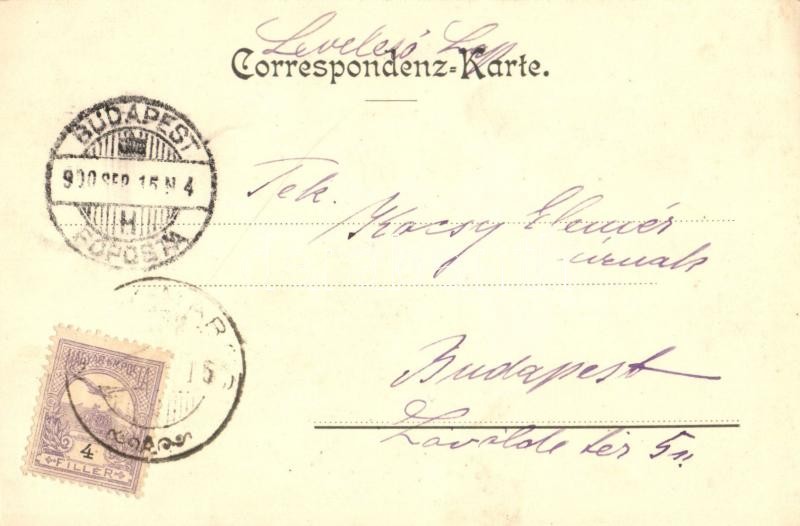 Levelező Lap
Correspondenz-Karte.
BUDAPEST
900 SEP 15 N 4
H
FŐPOSTA
Tek.
Kocsy Elemér
úrnak
Budapest
tér 5
15
MAGYAR KIR. POSTA
4
FILLÉR